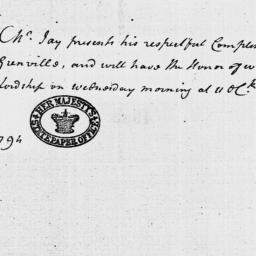 Mr. Jay presents his respectful Complim
Grenville, and will have the Honor of w
Lordship on Wednesday morning at 11 OCk
HER MAJESTY'S STATE PAPER OFFICE
794